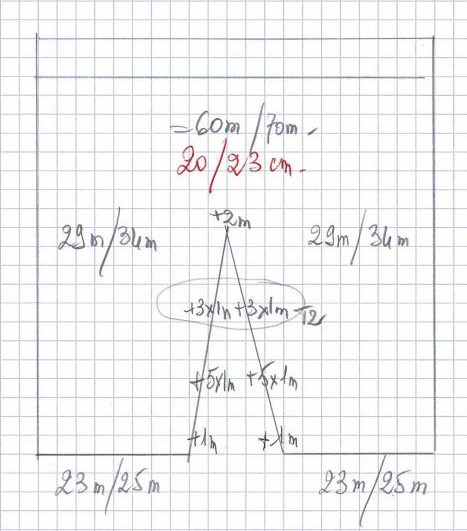 =60m/70m.
20/23 cm.
+2m
29m/34m 29m/34m
+3x1m +3x1m-T2
+5x1m +5x1m
+1m +1m
23m/25m 23m/25m